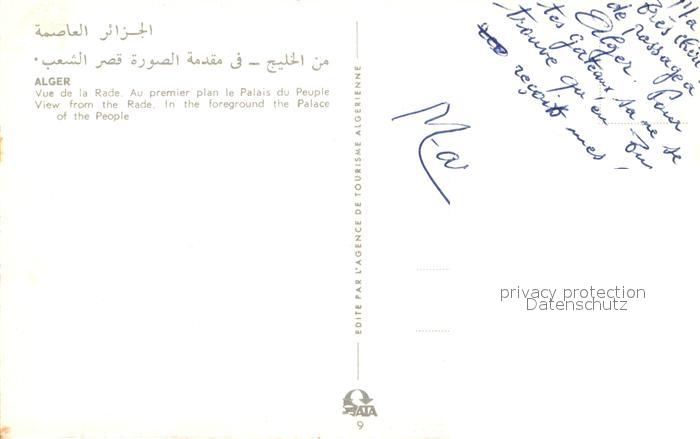 الجزائر العاصمة
من الخليج ـ فى مقدمة الصورة قصر الشعب•
ALGER
Vue de la Rade. Au premier plan le Palais du Peuple
View from the Rade. In the foreground the Palace
of the People
EDITE PAR L'AGENCE DE TOURISME ALGERIENNE
ATA
9
Ma
très chère
de passage à
Alger. Pour
tes gateaux sa ne se
trouve qu'en
reçoit mes
privacy protection
Datenschutz